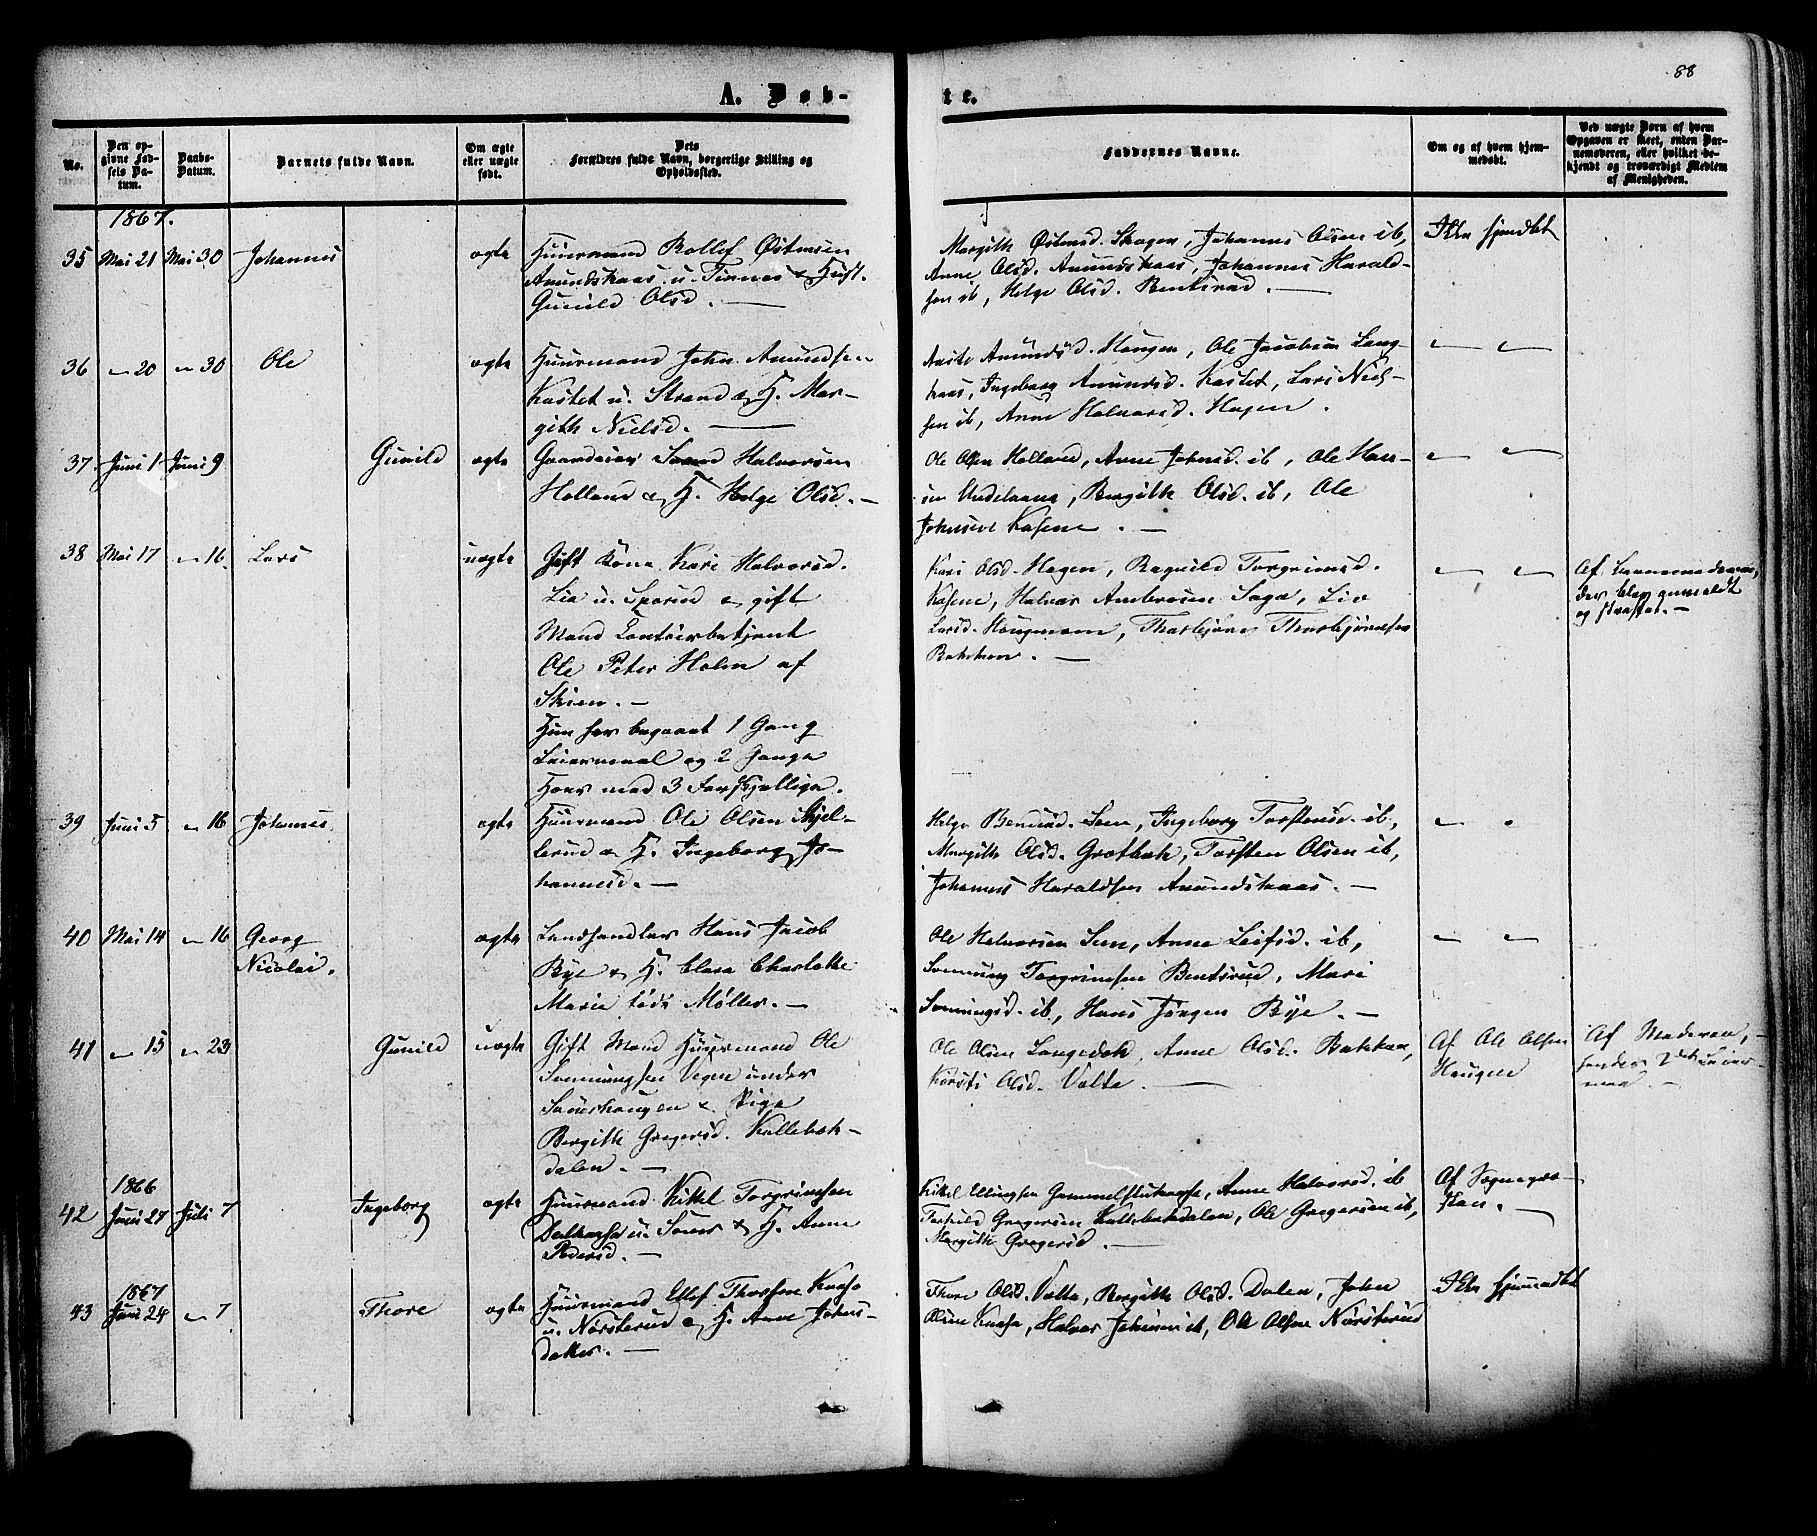 88
A. Døb-
te.
No.
Den op-
givne Fød-
sels Da-
tum.
Daabs-
Datum.
Barnets fulde Navn.
Om ægte
eller uægte
født.
Dets
Forældres fulde Navn, borgerlige Stilling og
Opholdssted.
Faddernes Navne.
Om og af hvem hjem-
medøbt.
Ved uægte Børn af hvem
Opgaven er skeet, enten Bar-
nemoderen, eller hvilket be-
kjendt og troværdigt Medlem
af Menigheden.
1867.
35 Mai 21 Mai 30 Johannes ægte
Huusmand Rollef Østensen
Amundskaas u. Tinnes & Hust.
Gunild Olsd. —
Margith Østensd. Skogen, Johannes Olsen ib,
Anne Olsd. Amundskaas, Johannes Harald-
sen ib, Helge Olsd. Bentsrud. —
Ikke hjemdbt
36 — 20 — 30 Ole ægte
Huusmand John Amundsen
Kastet u. Strand & H. Mar-
gith Nielsd. —
Amundsd. Haugen, Ole Jacobsen Lang-
kaas, Ingeborg Amundsd. Kastet, Lars Niel-
sen ib, Anne Halvorsd. Hagen.
— —
37 Juni 1 Juni 9 Gunild ægte
Gaardeier Halvorsen
Holland & H. Helge Olsd. —
Ole Olsen Holland, Anne Johnsd. ib, Ole Han-
sen, Bergith Olsd. ib, Ole
Johnsen Kasene. —
— —
38 Mai 17 — 16 Lars uægte
Gift Kone Kari Halvorsd.
Lia u. & gift
Mand Contoirbetjent
Ole Peter Holm af
Skien. —
Hun har begaaet 1 Gang
Leiermaal og 2 Gange
Hoer med 3 Forskjellige.
Kari Olsd. Hagen, Ragnild Torgrimsd.
Kasene, Halvor Ambrosen Saga, Liv
Larsd. Haugmoen, Thorbjørn Thorbjørnsen
Bakken. —
— —
Af Barnemoderen,
der blev anmeldt
og straffet. —
39 Juni 5 — 16 Johannes ægte
Huusmand Ole Olsen Skjel-
lerud & H. Ingeborg Jo-
hannesd. —
Helge Sem, Ingeborg Torstensd. ib,
Margith Olsd. Grotbæk, Torsten Olsen ib,
Johannes Haraldsen Amundskaas. —
40 Mai 14 — 16 Georg
Nicolai. ægte
Landhandler Hans Jacob
Bye & H. Clara Charlotte
Marie født Møller. —
Ole Halvorsen Sem, Anne Leifsd. ib,
Sonnung Torgrimsen Bentsrud, Mari
Sonnungsd. ib, Hans Jørgen Bye. —
— —
41 — 15 — 23 Gunild uægte
Gift Mand Huusmand Ole
Sonnungsen under
& Pige
Bergith Gregersd. Kallebæk-
dalen. —
Ole Olsen Langebæk, Anne Olsd. Bakken,
Kirsti Olsd. Valte. —
Af Ole Olsen
Haugen
Af Moderen,
hendes 2det Leier-
maal. —
1866
42 Juni 27 Juli 7 Ingeborg ægte
Huusmand Kittel Torgrimsen
u. Sauer & H. Anne
Pedersd. —
Kittel Ellingsen, Anne Halvorsd. ib
Gregersen Kallebækdalen, Ole Gregersen ib,
Margith Gregersd. —
Af Sognepræ-
sten. —
1867
43 Juni 24 — 7 Thore ægte
Huusmand Ellef Thorsen
u. Nørsterud & H. Anne Johns-
datter. —
Thore Olsd. Valte, Bergith Olsd. Dalen, John
Olsen, Halvor Johnsen ib, Ole Olsen Nørsterud
Ikke hjemmedbt